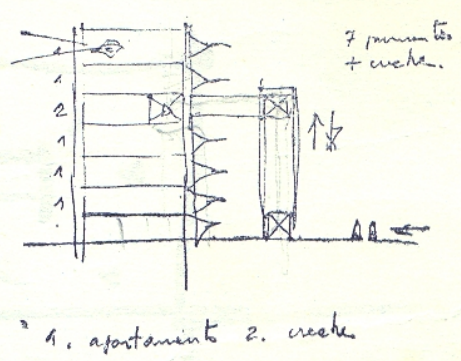 7 pavimentos
+ creche.
1
1
2
1
1
1
* 1. apartamento 2. creche